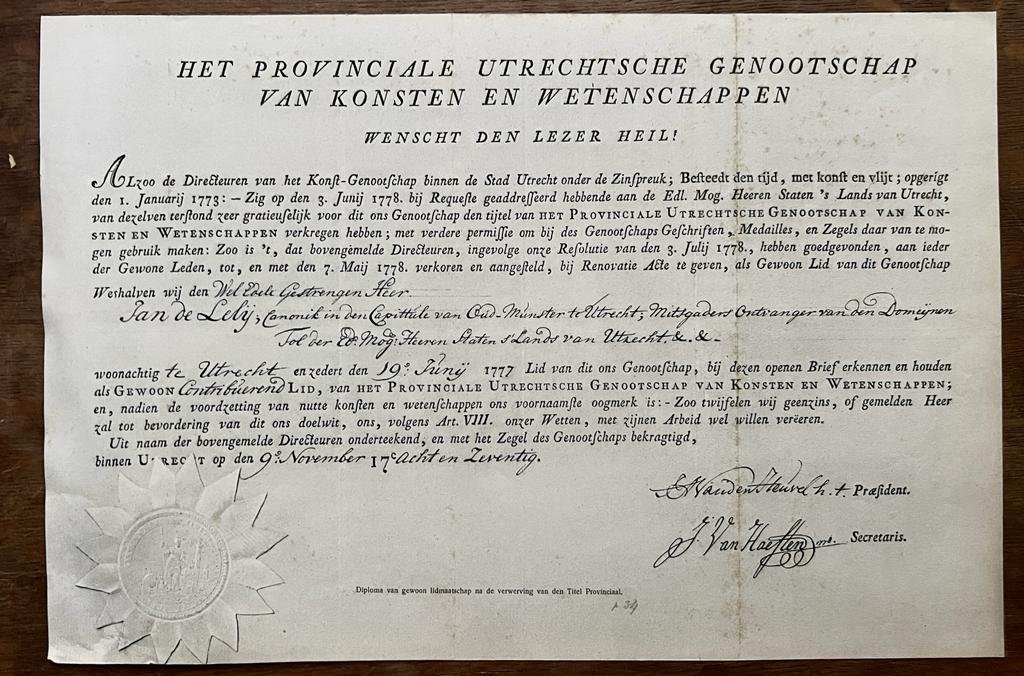 HET PROVINCIALE UTRECHTSCHE GENOOTSCHAP
VAN KONSTEN EN WETENSCHAPPEN
WENSCHT DEN LEZER HEIL!
ALzoo de Directeuren van het Konſt-Genootſchap binnen de Stad Utrecht onder de Zinſpreuk; Beſteedt den tijd, met konſt en vlijt; opgerigt
den 1. Januarij 1773: — Zig op den 3. Junij 1778. bij Requeſte geaddreſſeerd hebbende aan de Edl. Mog. Heeren Staten 's Lands van Utrecht,
van dezelven terſtond zeer gratieuſelijk voor dit ons Genootſchap den tijtel van HET PROVINCIALE UTRECHTSCHE GENOOTSCHAP VAN KON-
STEN EN WETENSCHAPPEN verkregen hebben; met verdere permiſſie om bij des Genootſchaps Geſchriften, Medailles, en Zegels daar van te mo-
gen gebruik maken: Zoo is 't, dat bovengèmelde Directeuren, ingevolge onze Reſolutie van den 3. Julij 1778., hebben goedgevonden, aan ieder
der Gewone Leden, tot, en met den 7. Maij 1778. verkoren en aangeſteld, bij Renovatie Acte te geven, als Gewoon Lid van dit Genootſchap
Weshalven wij den Wel Edele Gestrengen Heer
Jan de Lelij, Canonik in den Capittule van Oud-Munster te Utrecht, Mitsgaders Ontvanger van den Domeijnen
Tol der Ed: Mog: Heeren Staten s'Lands van Utrecht. &. &-
woonachtig te Utrecht en zedert den 19e. Junij 1777 Lid van dit ons Genootſchap, bij dezen openen Brief erkennen en houden
als GEWOON Contribuerend LID, van HET PROVINCIALE UTRECHTSCHE GENOOTSCHAP VAN KONSTEN EN WETENSCHAPPEN;
en, nadien de voordzetting van nutte konſten en wetenſchappen ons voornaamſte oogmerk is: - Zoo twijfelen wij geenzins, of gemelden Heer
zal tot bevordering van dit ons doelwit, ons, volgens Art. VIII. onzer Wetten, met zijnen Arbeid wel willen verëeren.
Uit naam der bovengemelde Directeuren onderteekend, en met het Zegel des Genootſchaps bekragtigd,
binnen UTRECHT op den 9e. November 17c Acht en Zeventig.
Van den Heuvel h. t. Præſident.
J. Van Haeften Secretaris.
Diploma van gewoon lidmaatschap na de verwerving van den Titel Provinciaal.